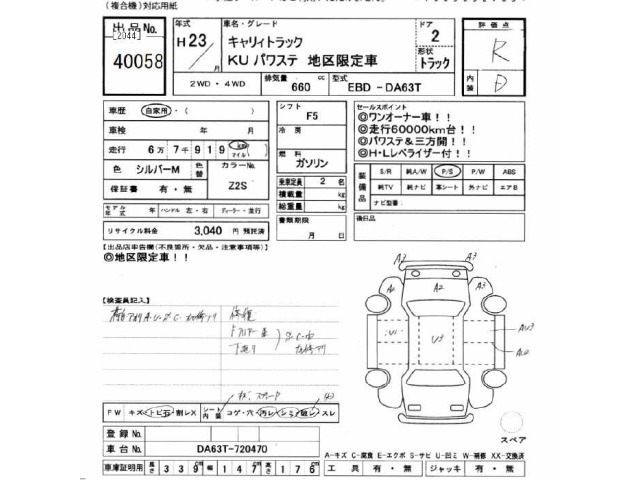 (複合機)対応用紙
出品No.
[2044]
40058
年式
H23/ 月
車名・グレード
キャリィトラック
KU パワステ 地区限定車
ドア
2
形状
トラック
評価点
R
内装
D
2WD・4WD
排気量
660 cc
型式
EBD-DA63T
車歴 自家用・( )
車検 年 月
走行 6万 7千 9 1 9 km マイル
色 シルバーM
色替
カラーNo.
Z2S
保証書 有・無
モデル年式 年 ハンドル 左・右 ディーラー・並行
リサイクル料金 3,040 円 預託済
シフト F5
冷房
燃料 ガソリン
乗車定員 2 名
積載量 kg
総重量 kg
書類期限
月 日
セールスポイント
◎ワンオーナー車!!
◎走行60000km台!!
◎パワステ&三方開!!
◎H・Lレベライザー付!!
装備品
S/R 純A/W P/S P/W ABS
純TV 純ナビ 革シート 外ナビ エアB
ナビ型番:
後日品
【出品店申告欄(不良箇所・欠品・注意事項等)】
◎地区限定車!!
【検査員記入】
A2 A3
A2
U1 U3 AU3
FW キズ・トビ石・割レX
シート内装 コゲ・穴 汚レ・シミ・破レ・スレ
スペア
登録No.
車台No. DA63T-720470
車庫証明用 長さ 339 幅 147 高さ 176
A-キズ C-腐食 E-エクボ S-サビ U-凹ミ W-補修 XX-交換済
工具 有・無 ジャッキ 有・無